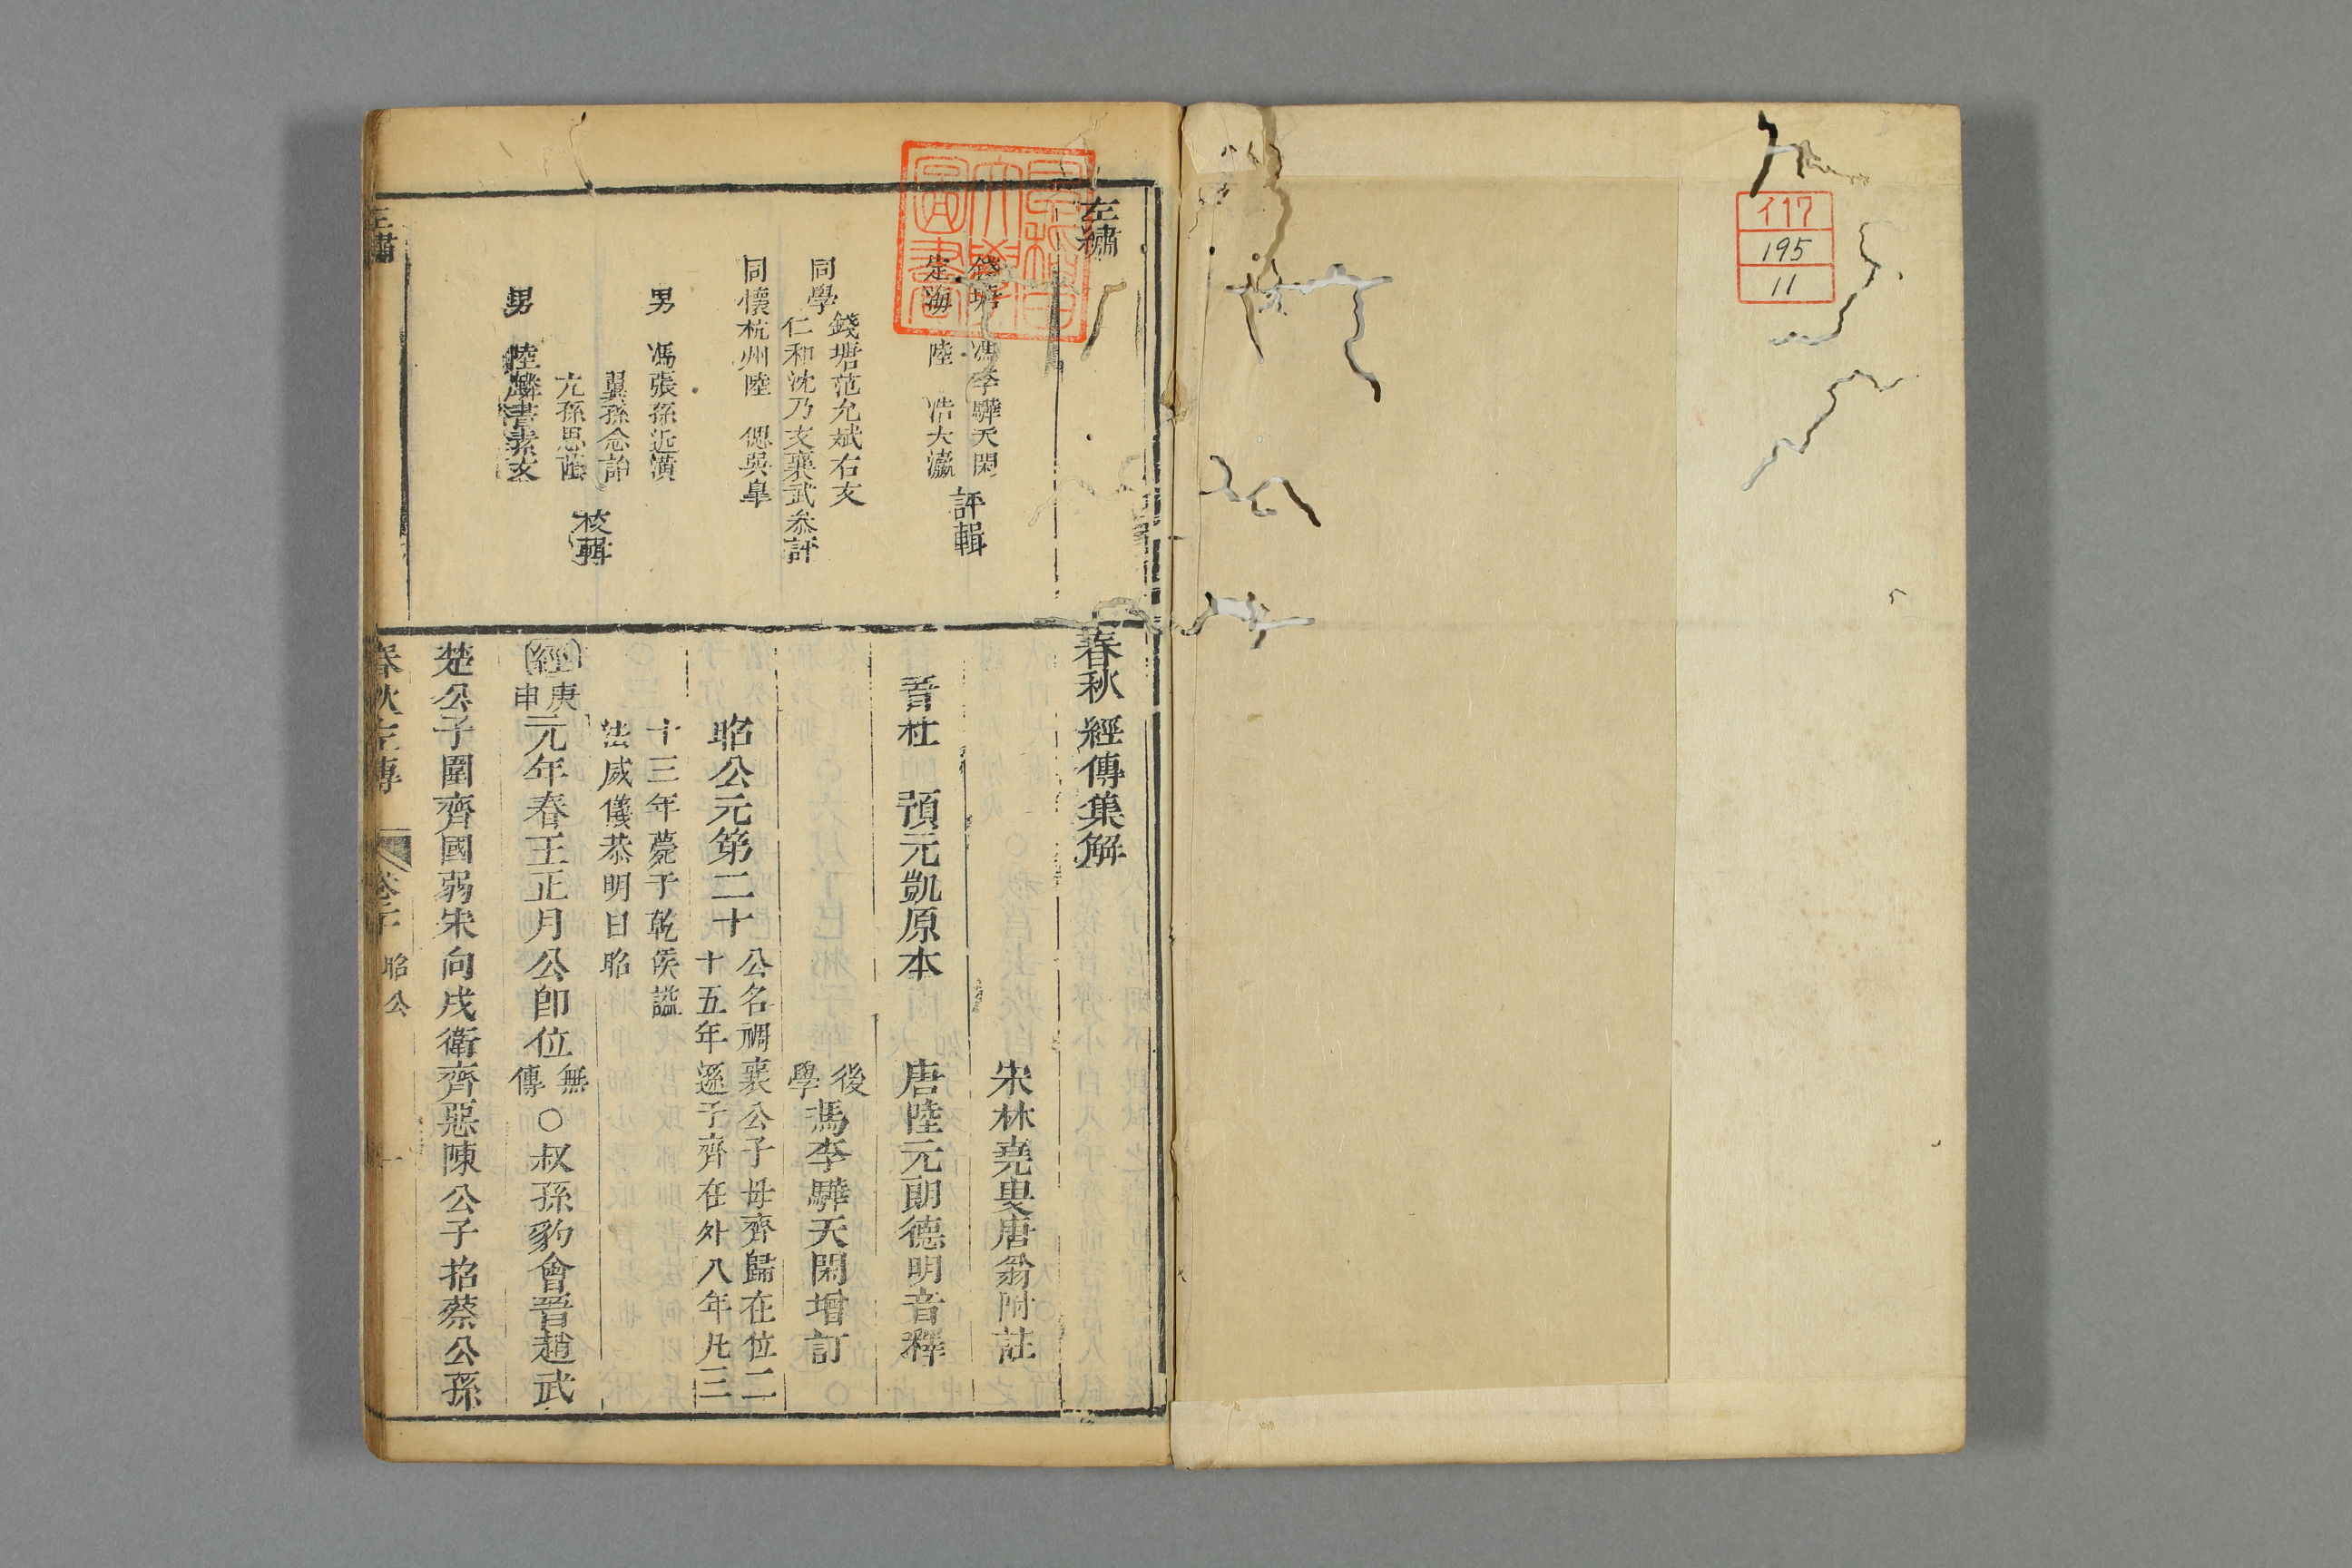 イ17
195
11
左繡
錢塘 馮李驊天閑
定海 陸 浩大瀛
評輯
同學
錢塘范允斌右文
仁和沈乃文襄武
參評
同懷杭州陸 偲吳皐
男 馮張孫近潢
翼孫念詒
亢孫思蔭
男 陸麟書素文
校輯
左繡
早稲田大學圖書
春秋經傳集解
宋林堯叟唐翁附註
晉杜 預元凱原本 唐陸元朗德明音釋
後學馮李驊天閑增訂
昭公元第二十 公名裯襄公子母齊歸在位二十五年遜于齊在外八年凡三
十三年薨于乾侯諡法威儀恭明曰昭
經庚申元年春王正月公卽位無傳○叔孫豹會晉趙武
楚公子圍齊國弱宋向戌衛齊惡陳公子招蔡公孫
春秋左傳 卷二十 昭公 一